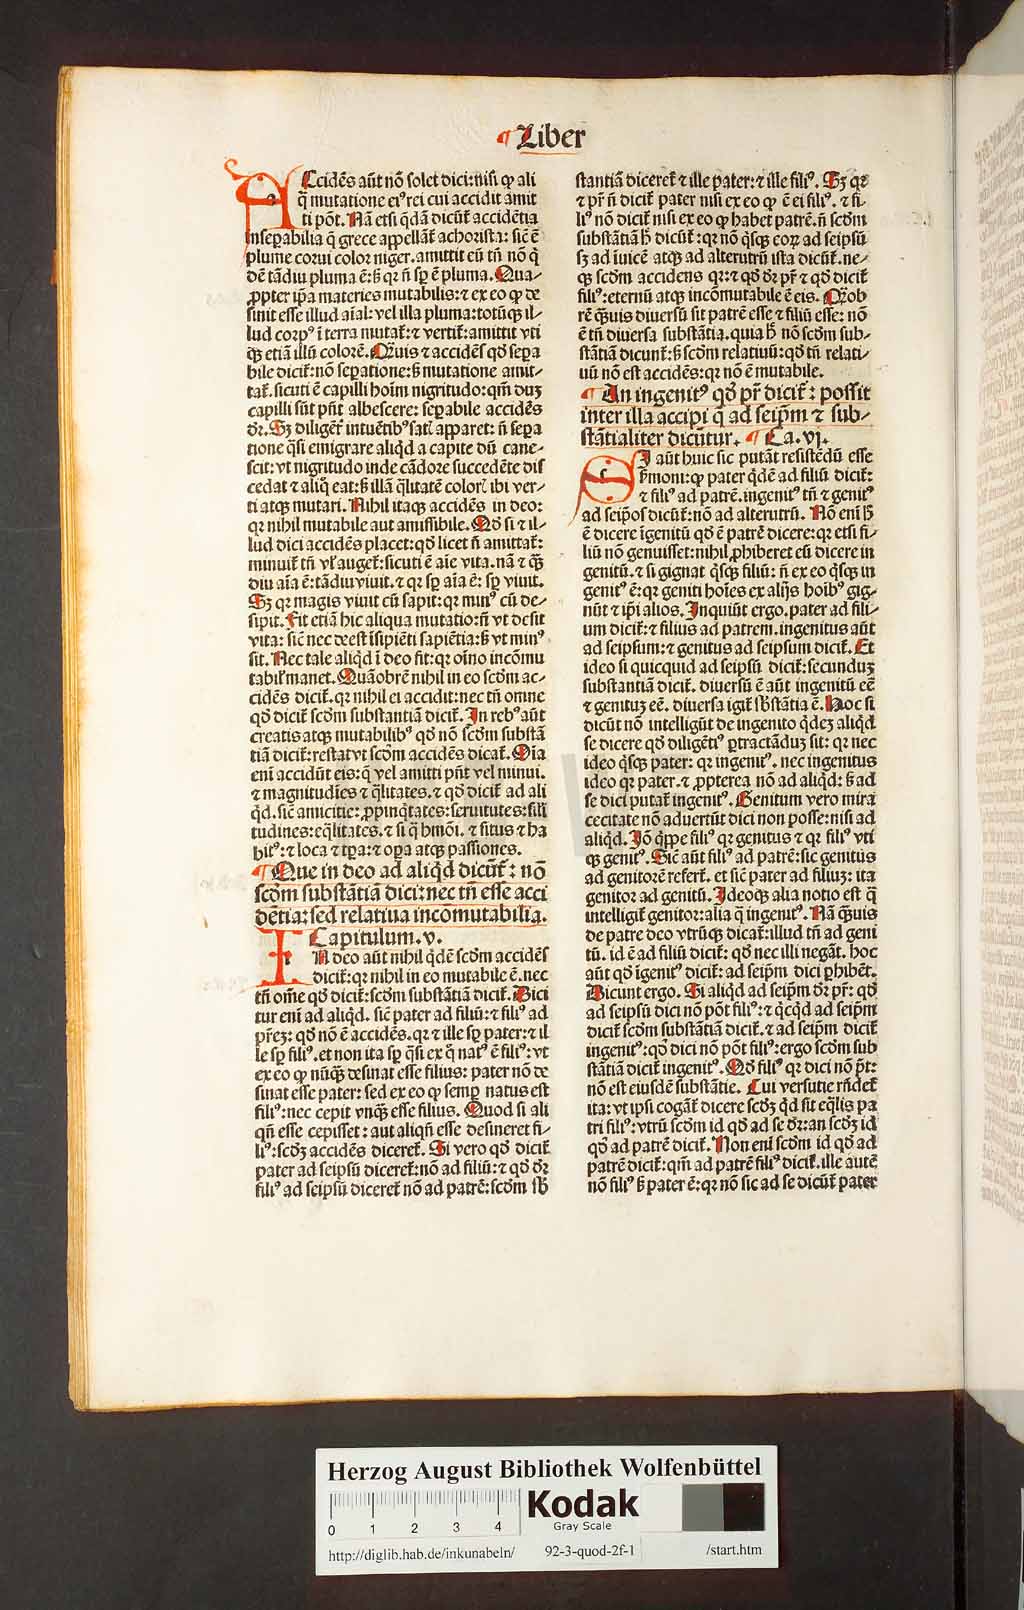 ¶ Liber
ACcidēs aūt nō solet dici: nisi ꝙ ali
q̄ mutatione eiꝰ rei cui accidit amit
ti pōt. Nā etsi q̄dā dicūt᷑ accidētia
inseꝑabilia q̄ grece appellāt᷑ achorista: sic̄ ē
plume corui color niger. amittit eū tn̄ nō q̄
dē tādiu pluma ē: ß qꝛ n̄ sꝑ ē pluma. Qua⸗
ꝓpter ip̄a materies mutabilis: ⁊ ex eo ꝙ de
sinit esse illud aīal: vel illa pluma: totūqꝫ il⸗
lud corpꝰ ī terra mutat᷑: ⁊ vertit᷑: amittit vti
qꝫ etiā illū colorē. Qꝫuis ⁊ accidēs qd̓ seꝑa
bile dicit᷑: nō seꝑatione: ß mutatione amit⸗
tat᷑. sicuti ē capilli hoīm nigritudo: qm̄ duꝫ
capilli sūt pn̄t albescere: seꝑabile accidēs
dr̄. Sꝫ diligēt᷑ intuētibꝰ satꝭ apparet: n̄ seꝑa
tione q̄si emigrare aliqd̓ a capite dū cane⸗
scit: vt nigritudo inde cādore succedēte dis
cedat ⁊ aliqͦ eat: ß illā q̄litatē colorꝭ ibi ver⸗
ti atqꝫ mutari. Nihil itaqꝫ accidēs in deo:
qꝛ nihil mutabile aut amissibile. Qd̓ si ⁊ il⸗
lud dici accidēs placet: qd̓ licet n̄ amittat᷑:
minuit᷑ tn̄ vl̓ auget᷑: sicuti ē aīe vita. nā ⁊ qꝫ
diu aīa ē: tādiu viuit. ⁊ qꝛ sꝑ aīa ē: sꝑ viuit.
Sꝫ qꝛ magis viuit cū sapit: qꝛ minꝰ cū de⸗
sipit. Fit etiā hic aliqua mutatio: n̄ vt desit
vita: sic̄ nec deest īsipiēti sapiētia: ß vt minꝰ
sit. Nec tale aliqd̓ ī deo fit: qꝛ oīno incōmu
tabil̓ manet. Quāobrē nihil in eo scd̓m ac⸗
cidēs dicit᷑. qꝛ nihil ei accidit: nec tn̄ omne
qd̓ dicit᷑ scd̓m substantiā dicit᷑. In rebꝰ aūt
creatis atqꝫ mutabilibꝰ qd̓ nō scd̓m substā
tiā dicit᷑: restat vt scd̓m accidēs dicat᷑. Oīa
enī accidūt eis: q̄ vel amitti pn̄t vel minui.
⁊ magnitudīes ⁊ q̄litates. ⁊ qd̓ dicit᷑ ad ali
qd̓. sic̄ amicitie: ꝓpinq̄tates: seruitutes: sil̓i
tudines: eq̄litates. ⁊ si q̄ hmōi. ⁊ situs ⁊ ha
bitꝰ: ⁊ loca ⁊ tp̄a: ⁊ oꝑa atqꝫ passiones.
¶ Que in deo ad aliqd̓ dicūt᷑: nō
scd̓m substātiā dici: nec tn̄ esse acci
dētia: sed relatiua incōmutabilia.
Capitulum. v.
IN deo aūt nihil qd̓dē scd̓m accidēs
dicit᷑: qꝛ nihil in eo mutabile ē. nec
tn̄ om̄e qd̓ dicit᷑: scd̓m substantiā dicit᷑. Dici
tur enī ad aliqd̓. sic̄ pater ad filiū: ⁊ filiꝰ ad
pr̄eꝫ: qd̓ nō ē accidēs. qꝛ ⁊ ille sꝑ pater: ⁊ il
le sꝑ filiꝰ. et non ita sꝑ q̄si ex qͦ natꝰ ē filiꝰ: vt
ex eo ꝙ nūqꝫ desinat esse filius: pater nō de
sinat esse pater: sed ex eo ꝙ semꝑ natus est
filiꝰ: nec cepit vnqꝫ esse filius. Quod si ali
qn̄ esse cepisset: aut aliqn̄ esse desineret fi⸗
liꝰ: scd̓ꝫ accidēs diceret᷑. Si vero qd̓ dicit᷑
pater ad seipsū diceret᷑: nō ad filiū: ⁊ qd̓ dr̄
filiꝰ ad seipsū diceret᷑ nō ad patrē: scd̓m sb̄
stantiā diceret᷑ ⁊ ille pater: ⁊ ille filiꝰ. Sꝫ qꝛ
⁊ pr̄ n̄ dicit᷑ pater nisi ex eo ꝙ ē ei filiꝰ. ⁊ fi⸗
liꝰ nō dicit᷑ nisi ex eo ꝙ habet patrē. n̄ scd̓m
substātiā h̄ dicūt᷑: qꝛ nō qͥsqꝫ eoꝝ ad seipsū
sꝫ ad iuicē atqꝫ ad alterutrū ista dicūt᷑. ne⸗
qꝫ scd̓m accidens qꝛ: ⁊ qd̓ dr̄ pr̄ ⁊ qd̓ dicit᷑
filiꝰ: eternū atqꝫ incōmutabile ē eis. Qꝛob
rē qꝫuis diuersū sit patrē esse ⁊ filiū esse: nō
ē tn̄ diuersa substātia. quia h̄ nō scd̓m sub⸗
stātiā dicunt᷑: ß scd̓m relatiuū: qd̓ tn̄ relati⸗
uū nō est accidēs: qꝛ nō ē mutabile.
¶ An ingenitꝰ qd̓ pr̄ dicit᷑: possit
inter illa accipi q̄ ad seip̄m ⁊ sub⸗
stātialiter dicūtur. ¶ Ca. vj.
SI aūt huic sic putāt resistēdū esse
s̓moni: ꝙ pater qd̓dē ad filiū dicit᷑:
⁊ filiꝰ ad patrē. ingenitꝰ tn̄ ⁊ genitꝰ
ad seip̄os dicūt᷑: nō ad alterutrū. Nō enī h̄
ē dicere īgenitū qd̓ ē patrē dicere: qꝛ etsi fi⸗
liū nō genuisset: nihil ꝓhiberet eū dicere in
genitū. ⁊ si gignat qͥsqꝫ filiū: n̄ ex eo qͥsqꝫ in
genitꝰ ē: qꝛ geniti hoīes ex alijs hoībꝰ gig⸗
nūt ⁊ ip̄i alios. Inquiūt ergo. pater ad fili⸗
um dicit᷑: ⁊ filius ad patrem. ingenitus aūt
ad seipsum: ⁊ genitus ad seipsum dicit᷑. Et
ideo si quicquid ad seipsū dicit᷑: secunduꝫ
substantiā dicit᷑. diuersū ē aūt ingenitū eē
⁊ genituꝫ eē. diuersa igit᷑ sb̄stātia ē. Hoc si
dicūt nō intelligūt de ingenito qd̓eꝫ aliqd̓
se dicere qd̓ diligētiꝰ ꝑtractāduꝫ sit: qꝛ nec
ideo qͥsqꝫ pater: qꝛ ingenitꝰ. nec ingenitus
ideo qꝛ pater. ⁊ ꝓpterea nō ad aliqd̓: ß ad
se dici putat᷑ ingenitꝰ. Genitum vero mira
cecitate nō aduertūt dici non posse: nisi ad
aliqd̓. Iō qͥppe filiꝰ qꝛ genitus ⁊ qꝛ filiꝰ vti
qꝫ genitꝰ. Sic̄ aūt filiꝰ ad patrē: sic genitus
ad genitorē refert᷑. et sic̄ pater ad filiuꝫ: ita
genitor ad genitū. Ideoqꝫ alia notio est q̄
intelligit᷑ genitor: alia q̄ ingenitꝰ. Nā qꝫuis
de patre deo vtrūqꝫ dicat᷑: illud tn̄ ad geni
tū. id ē ad filiū dicit᷑: qd̓ nec illi negāt. hoc
aūt qd̓ īgenitꝰ dicit᷑: ad seip̄m dici ꝑhibēt.
Dicunt ergo. Si aliqd̓ ad seip̄m dr̄ pr̄: qd̓
ad seipsū dici nō pōt filiꝰ: ⁊ qͥcqd̓ ad seip̄m
dicit᷑ scd̓m substātiā dicit᷑. ⁊ ad seip̄m dicit᷑
ingenitꝰ: qd̓ dici nō pōt filiꝰ: ergo scd̓m sub
stātiā dicit᷑ ingenitꝰ. Qd̓ filiꝰ qꝛ dici nō pōt:
nō est eiusdē substātie. Cui versutie rn̄det᷑
ita: vt ipsi cogāt᷑ dicere scd̓ꝫ qd̓ sit eq̄lis pa
tri filiꝰ: vtrū scd̓m id qd̓ ad se dr̄: an scd̓ꝫ id
qd̓ ad patrē dicit᷑. Non enī scd̓m id qd̓ ad
patrē dicit᷑: qm̄ ad patrē filiꝰ dicit᷑. ille autē
nō filiꝰ ß pater ē: qꝛ nō sic ad se dicūt᷑ pater
Herzog August Bibliothek Wolfenbüttel
0 1 2 3 4
Kodak
Gray Scale
http://diglib.hab.de/inkunabeln/ 92-3-quod-2f-1 /start.htm